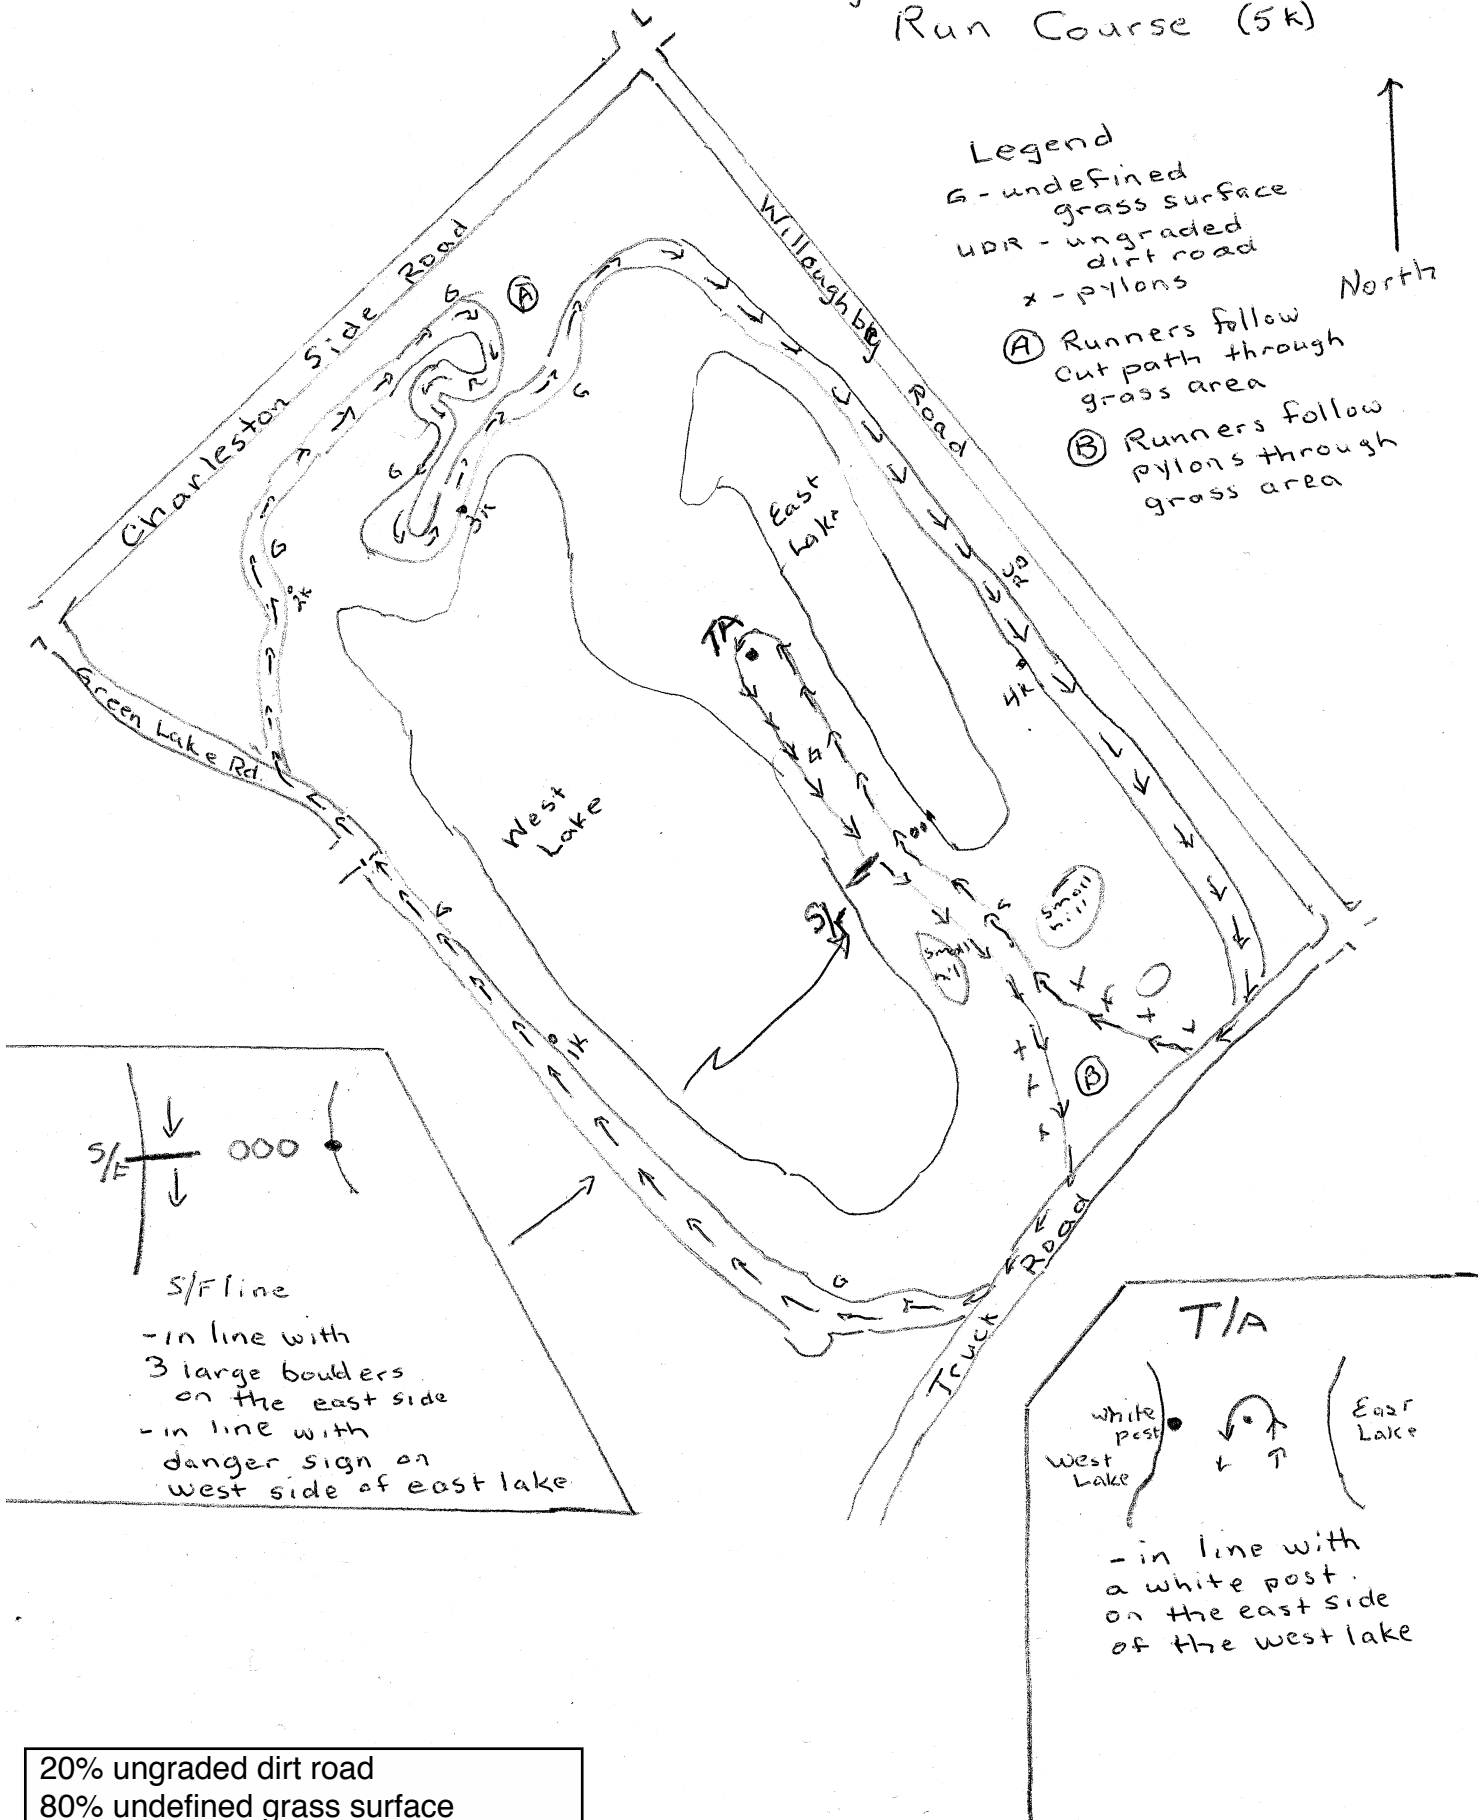 Run Course (5k)
Legend
G - undefined
grass surface
UDR - ungraded
dirt road
x - pylons
North
A Runners follow
cut path through
grass area
B Runners follow
pylons through
grass area
Charleston Side Road
Willoughby Road
UDR
Green Lake Rd.
Truck Road
G
A
G
G
G
3k
2k
East
Lake
TA
4k
G
West
Lake
S/F
G
small
hill
small
hill
G
1k
B
G
S/F
S/F line
- in line with
3 large boulders
on the east side
- in line with
danger sign on
west side of east lake
T/A
white
post
West
Lake
East
Lake
- in line with
a white post.
on the east side
of the west lake
20% ungraded dirt road
80% undefined grass surface